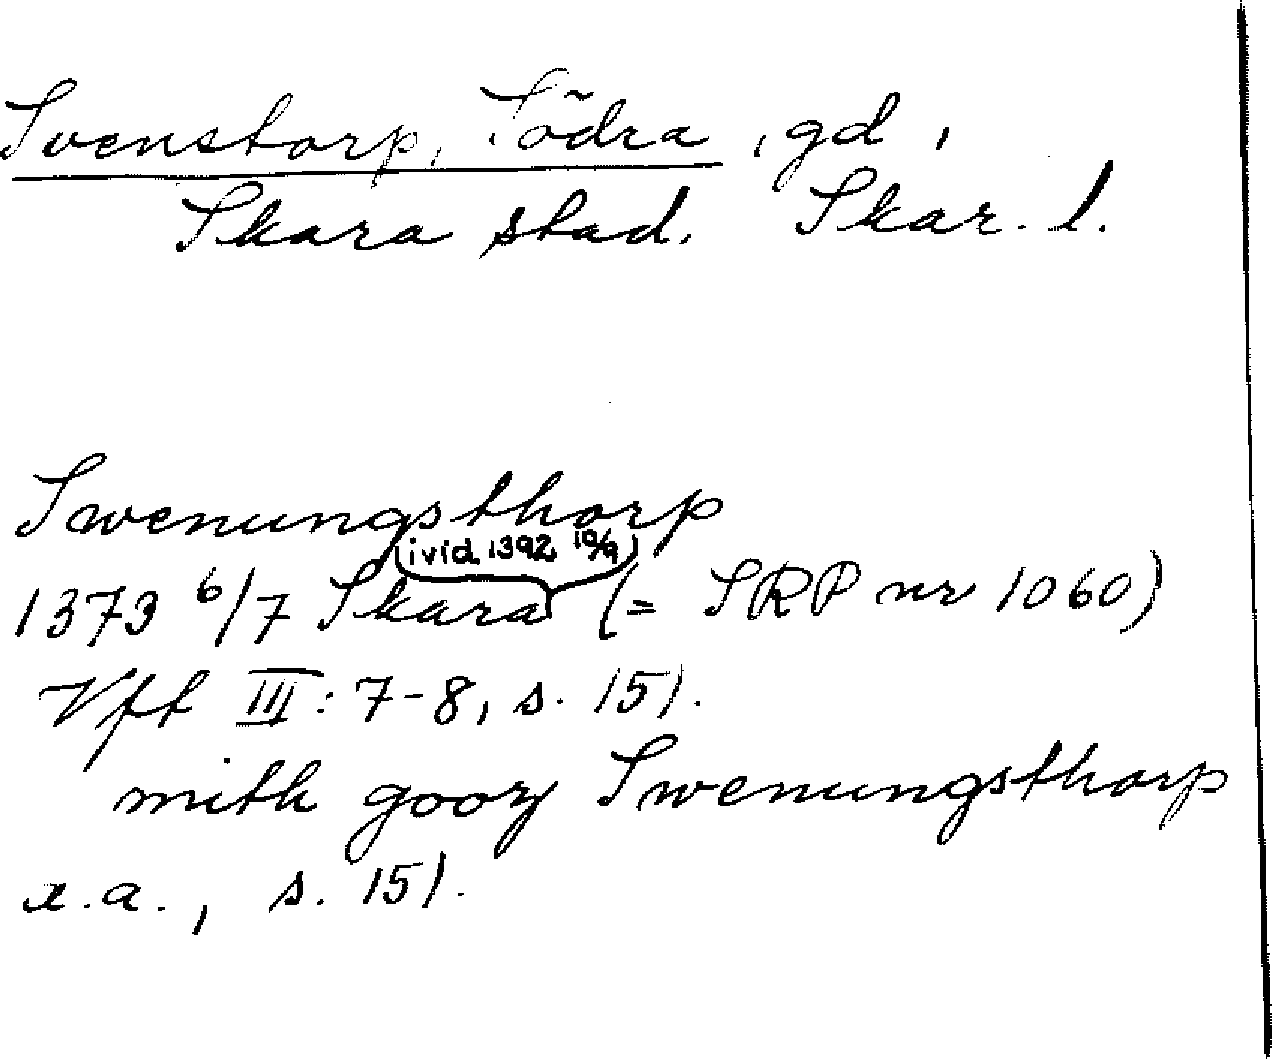 Svenstorp, Södra, gd,
Skara stad. Skar. l.
Swenungsthorp
(ivid 1392 10/9)
1373 6/7 Skara (= SRP nr 1060)
Vft III: 7-8, s. 151.
mith gooz Swenungsthorp
x.a., s. 151.